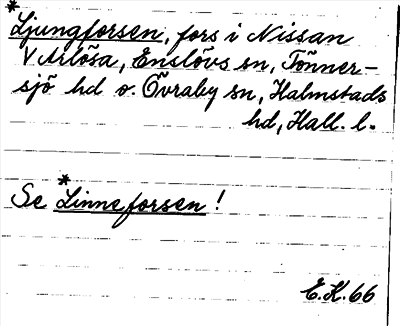 *Ljungforsen, fors i Nissan
V Årlösa, Enslövs sn, Tönner-
sjö hd o. Övraby sn, Halmstads
hd, Hall. l.
Se *Linneforsen!
E.K. 66